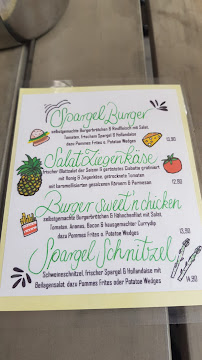 Spargel Burger
selbstgemachte Burgerbrötchen & Rindfleisch mit Salat,
Tomaten, frischem Spargel & Hollandaise
dazu Pommes Frites o. Potatoe Wedges
Salat Ziegenkäse
frischer Blattsalat der Saison & gartinierter
mit Honig & Ziegenkäse, getrocknete Tomaten
mit karamellisierten gesalzenen Körnern & Parmesan
12,90
Burger sweet'n chicken
selbstgemachte Burgerbrötchen & Hähnchenfilet mit Salat,
Tomaten, Ananas, Bacon & hausgemachter Currydip
dazu Pommes Frites o. Potatoe Wedges
Spargel Schnitzel
Schweineschnitzel, frischer Spargel & Hollandaise mit
Beilagensalat dazu Pommes Frites oder Potatoe Wedges
14,90